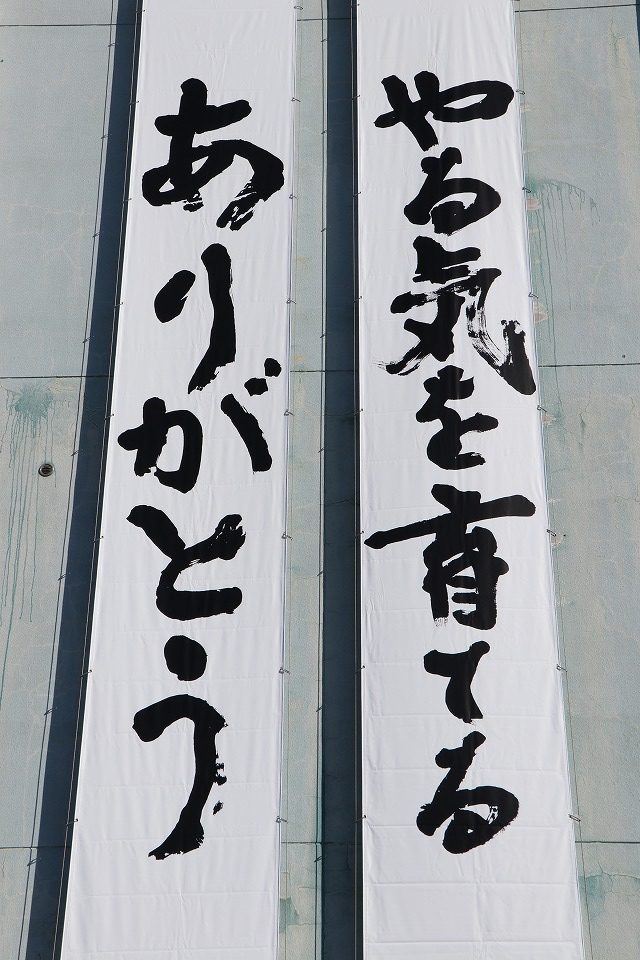 やる気を育てる
ありがとう